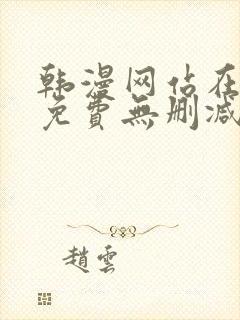 韩漫网站在
免費無删减
趙雲